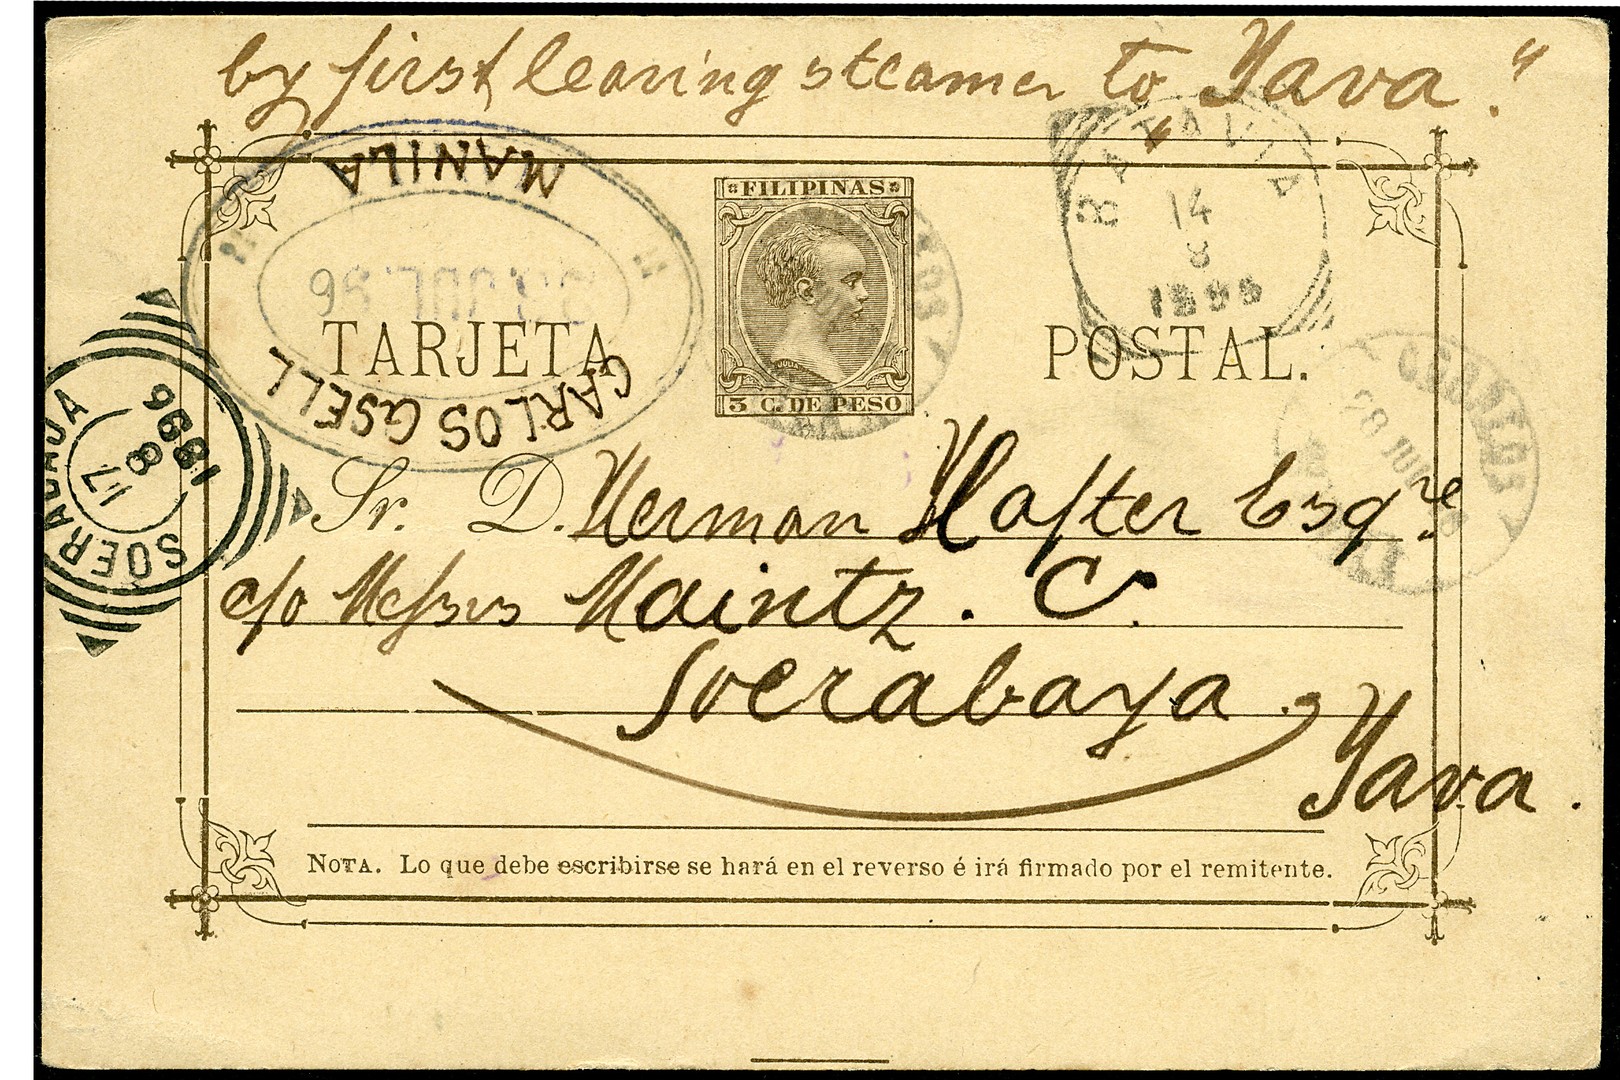 by first leaving steamer to Yava."
MANILA
CARLOS GSELL
FILIPINAS
3 C. DE PESO
BATAVIA
14
8
TARJETA POSTAL.
CORREOS
28
SOERABAJA
17
8
1896
Sr. D. Herman Hafter Esqre.
c/o Messrs Maintz. C.
Soerabaya,
Yava.
NOTA. Lo que debe escribirse se hará en el reverso é irá firmado por el remitente.